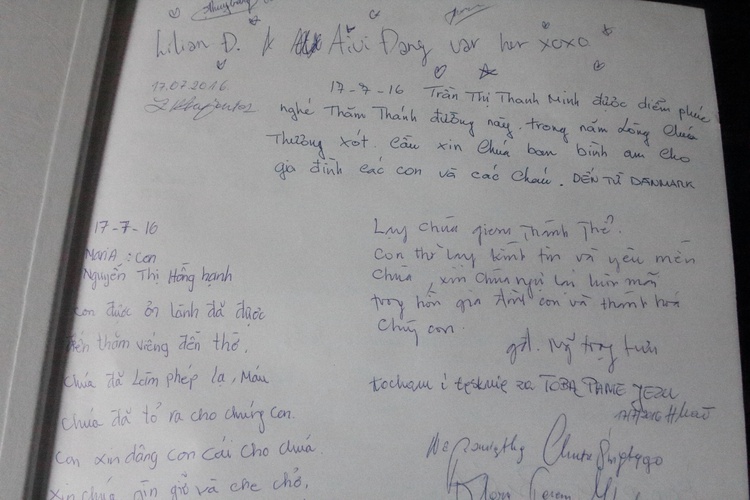 Lilian Đ. & Aivi Đang var her xoxo.
17.07.2016
17-7-16 Trần Thị Thanh Minh được diễm phúc
nghé Thăm Thánh đường này. trong năm Lòng Chúa
Thường Xót. Cầu xin Chúa ban bình an cho
gia đình các con và các cháu. ĐẾN TỪ DANMARK
17-7-16
Maria : Con
Nguyễn Thị Hồng hạnh
con được ơn lành đã được
đến thăm viếng đền thờ.
Chúa đã làm phép lạ, Máu
Chúa đã tỏ ra cho chúng con.
Con xin dâng con cái cho chúa
xin chúa gìn giữ và che chở.
Lạy chúa giesu Thánh Thể.
Con thờ lạy kính tin và yêu mến
Chúa xin Chúa ngự lại luôn mãi
trong hồn gia đình con và thánh hoá
Chúng con.
gđ.
kocham i tęsknię za TOBĄ PANIE JEZU
17/7/2016
Chwta